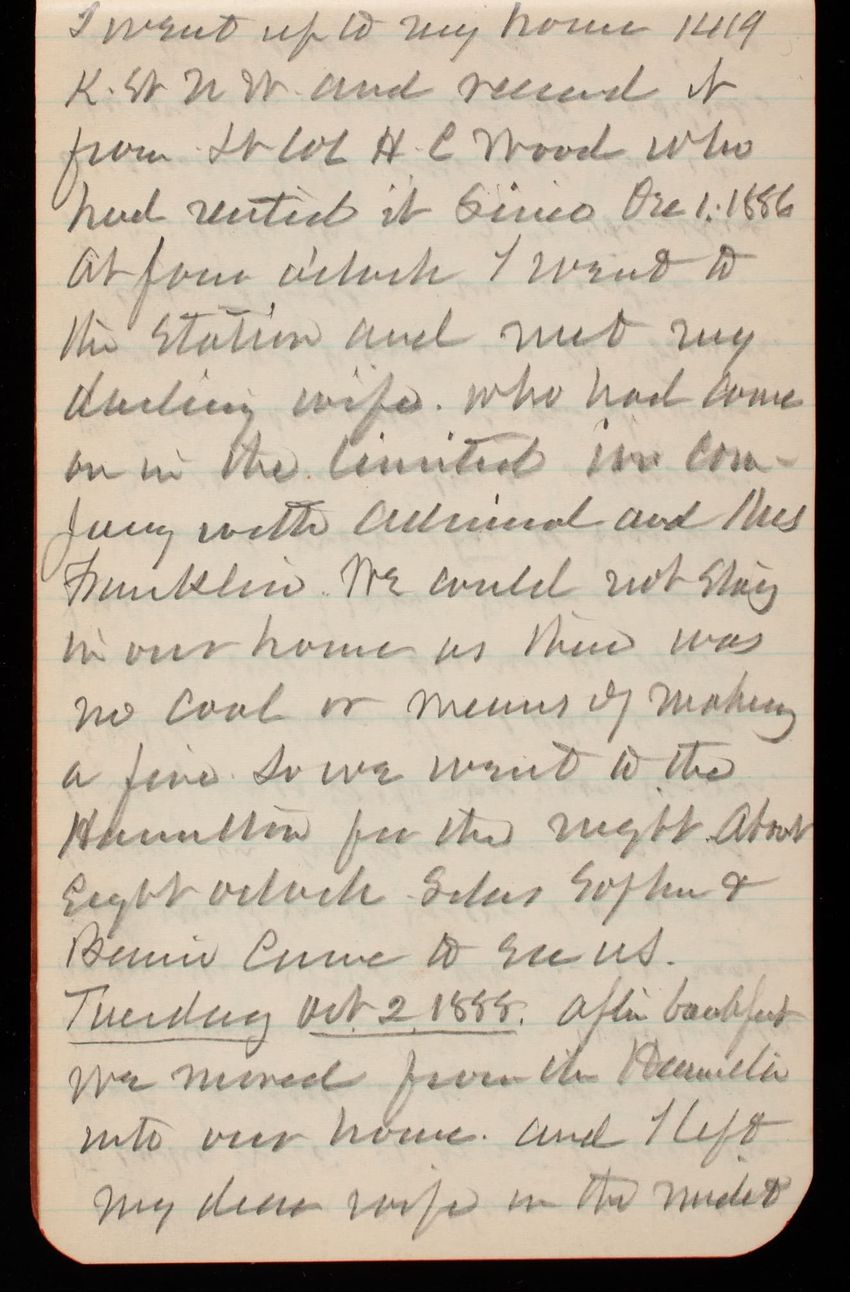 I went up to my home 1419
K. St N W. and received it
from Lt Col H. C Wood who
had rented it Since Dec 1. 1886
At four o'clock I went to
the Station and met my
darling wife. who had come
on in the limited in com-
pany with Admiral and Mrs
Franklin. We could not stay
in our home as there was
no coal or means of making
a fire. So we went to the
Hamilton for the night. About
Eight oclock Silas Sophie &
Bernie Came to See us.
Tuesday Oct. 2. 1888. After breakfast
We moved from the Hamilton
into our home. and I left
my dear wife in the midst